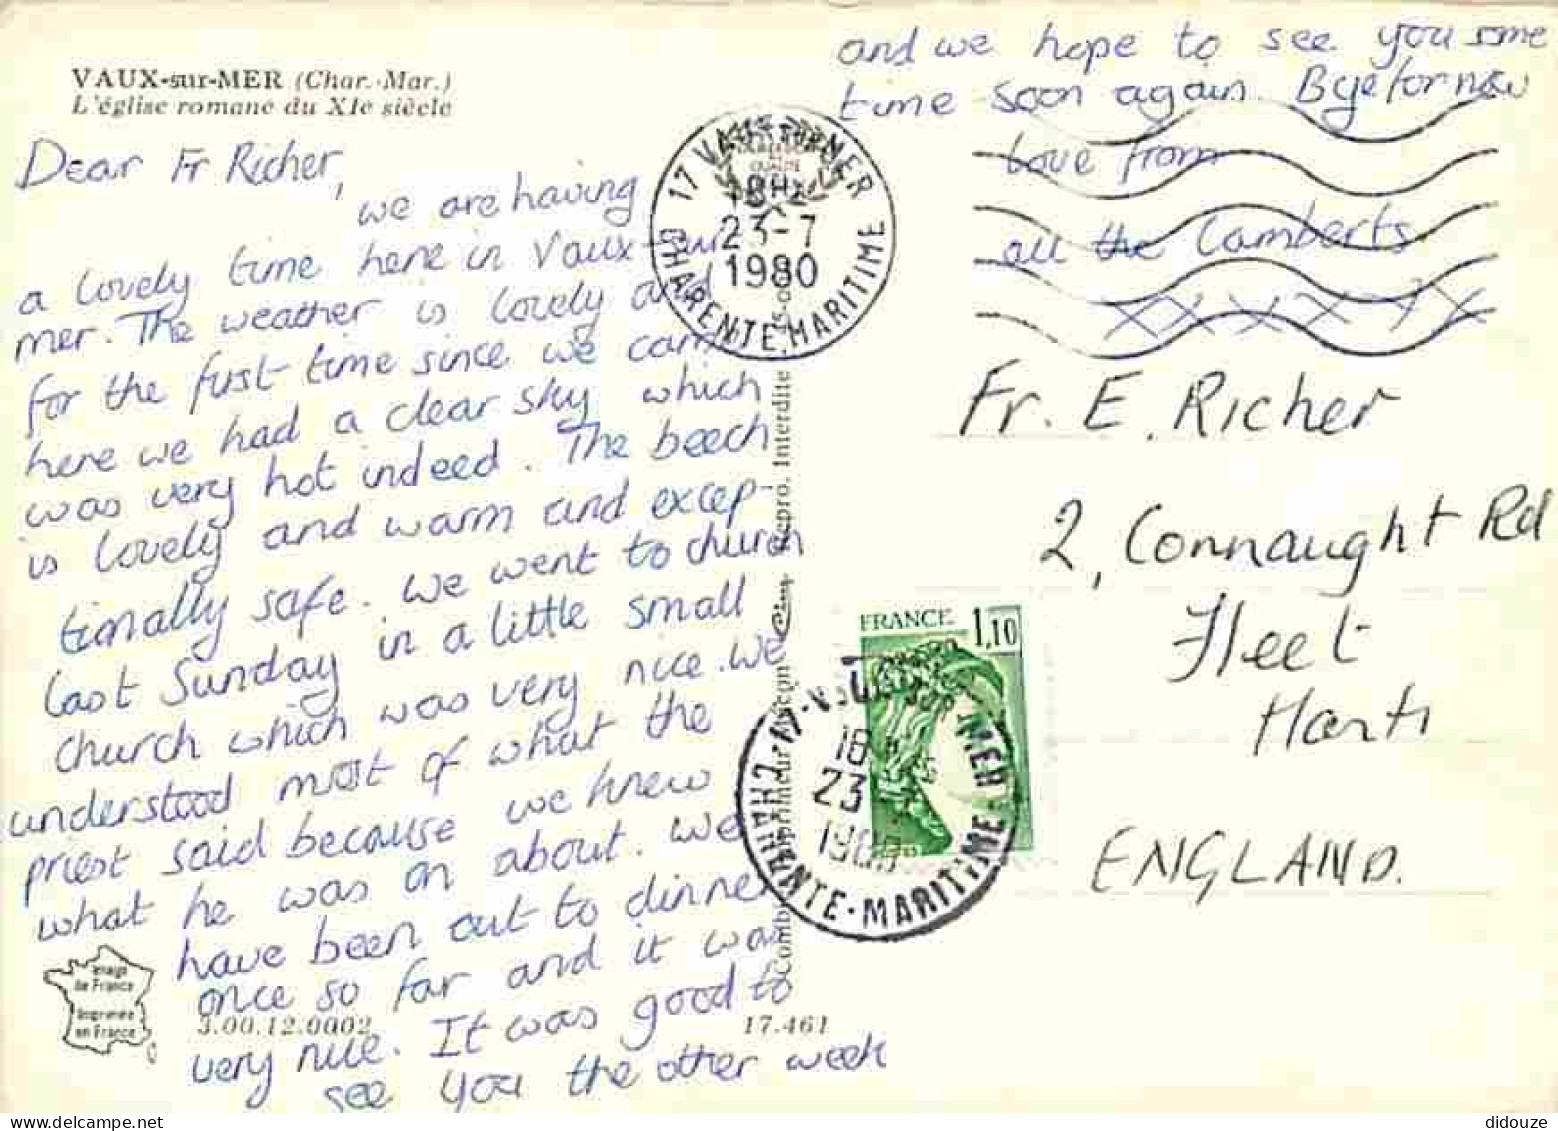 VAUX-sur-MER (Char.-Mar.)
L'église romane du XIe siècle
Dear Fr Richer,
we are having
a lovely time here in Vaux-sur
mer. The weather is lovely and
for the first time since we came
here we had a clear sky which
was very hot indeed. The beech
is lovely and warm and excep-
tionally safe. We went to church
last Sunday in a little small
church which was very nice. We
understood most of what the
priest said because we knew
what he was on about. We
have been out to dinner
once so far and it was
very nice. It was good to
see you the other week
and we hope to see you some
time soon again. Bye for now
love from
all the Lamberts
XXXXXX
17 VAUX SUR MER
18H
23-7
1980
CHARENTE-MARITIME
Fr. E. Richer
2, Connaught Rd
Fleet
Hants
ENGLAND.
FRANCE 1,10
17 VAUX SUR MER
18
23
1980
CHARENTE-MARITIME
Repro. Interdite
Image
de France
Imprimée
en France
3.00.12.0002
17.461
didouze